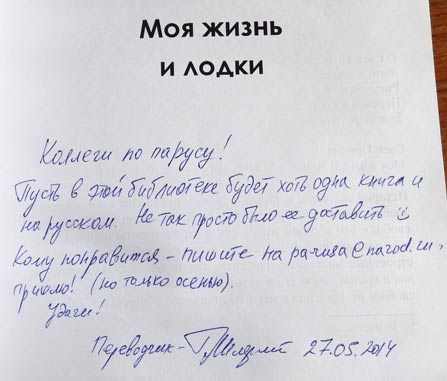 Моя жизнь
и лодки
Коллеги по парусу!
Пусть в этой библиотеке будет хоть одна книга и
на русском. Не так просто было ее доставить
Кому понравится - пишите на
пришлю! (но только осенью).
Удачи!
Переводчик - 27.05.2014